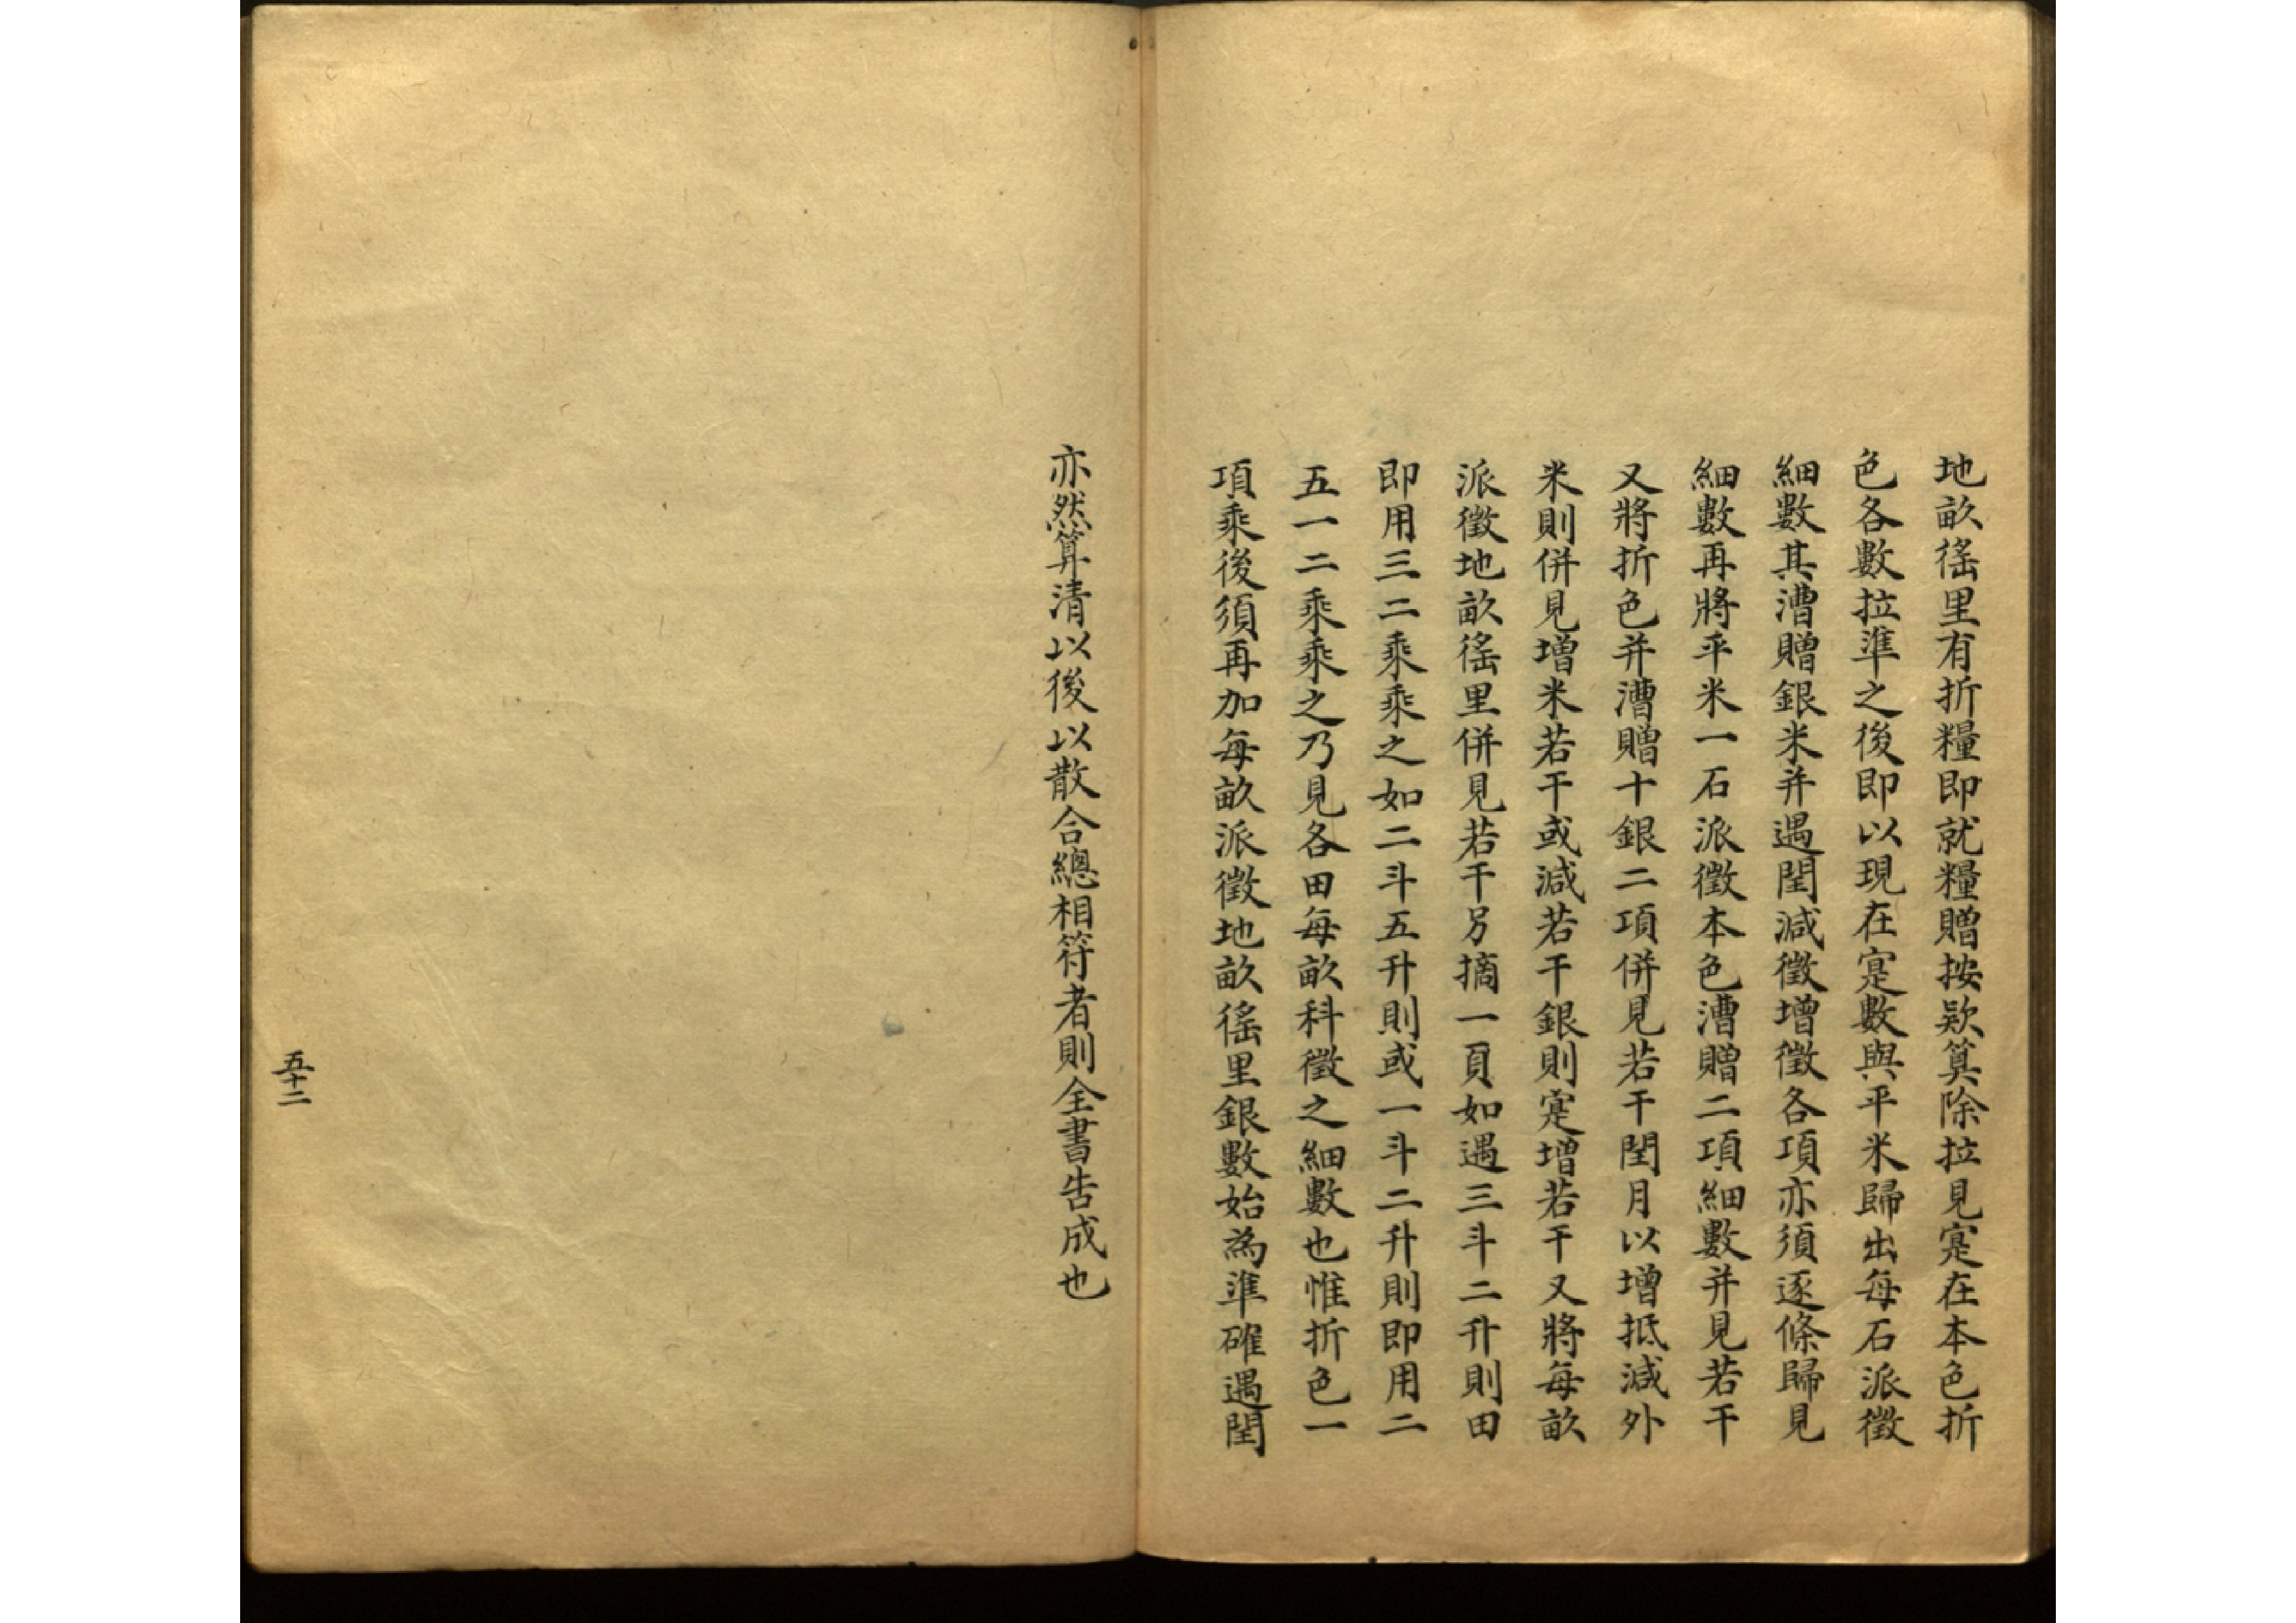 地畝徭里有折糧即就糧贈按欵算除拉見寔在本色折
色各數拉準之後即以現在寔數與平米歸出每石派徵
細數其漕贈銀米并遇閏減徵增徵各項亦須逐條歸見
細數再將平米一石派徵本色漕贈二項細數并見若干
又將折色并漕贈十銀二項併見若干閏月以增抵減外
米則併見增米若干或減若干銀則寔增若干又將每畝
派徵地畝徭里併見若干另摘一頁如遇三斗二升則田
即用三二乘乘之如二斗五升則或一斗二升則即用二
五一二乘乘之乃見各田每畝科徵之細數也惟折色一
項乘後須再加每畝派徵地畝徭里銀數始為準確遇閏
亦然算清以後以散合總相符者則全書告成也
五十二